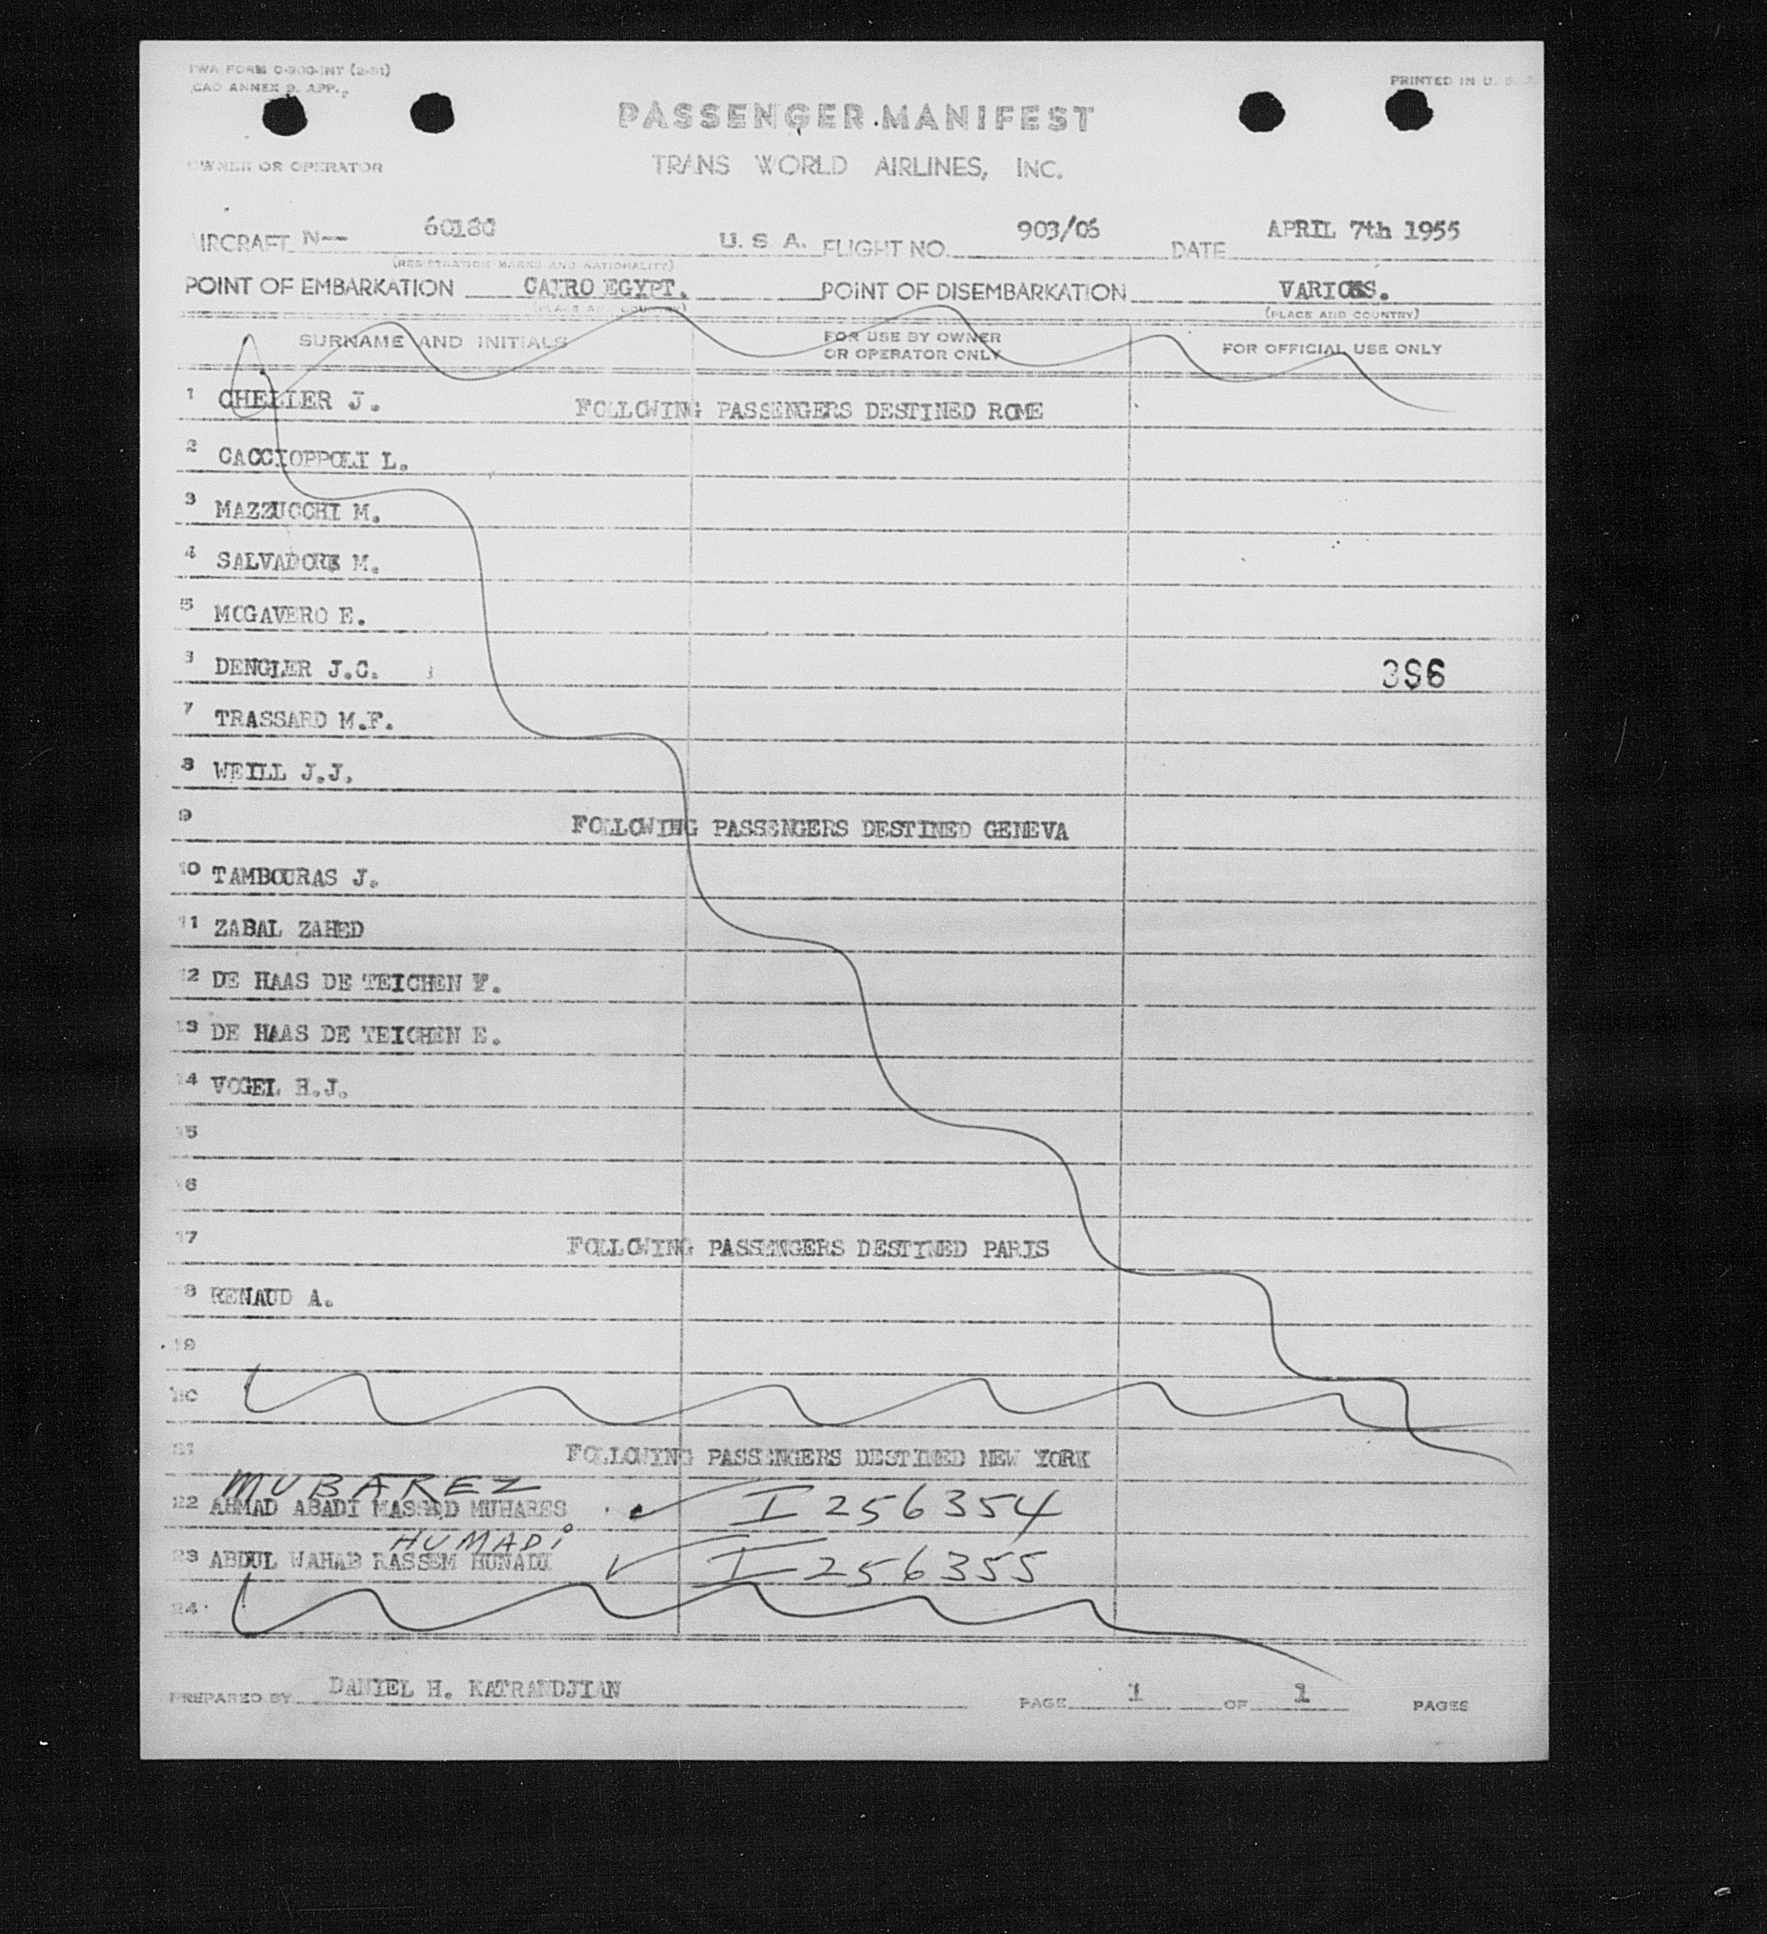 TWA FORM O-900-INT (2-51)
ICAO ANNEX 9. APP.
PRINTED IN U. S.
PASSENGER MANIFEST
OWNER OR OPERATOR
TRANS WORLD AIRLINES, INC.
AIRCRAFT N-- 60180 U. S A. FLIGHT NO. 903/06 DATE APRIL 7th 1955
(REGISTRATION MARKS AND NATIONALITY)
POINT OF EMBARKATION CAIRO EGYPT. POINT OF DISEMBARKATION VARIOUS.
(PLACE AND COUNTRY) (PLACE AND COUNTRY)
SURNAME AND INITIALS FOR USE BY OWNER OR OPERATOR ONLY FOR OFFICIAL USE ONLY
1 CHELLER J. FOLLOWING PASSENGERS DESTINED ROME
2 CACCIOPPOLI L.
3 MAZZUCCHI M.
4 SALVADORE M.
5 MOGAVERO E.
6 DENGLER J.C. 396
7 TRASSARD M.F.
8 WEILL J.J.
9 FOLLOWING PASSENGERS DESTINED GENEVA
10 TAMBOURAS J.
11 ZABAL ZAHED
12 DE HAAS DE TEICHEN F.
13 DE HAAS DE TEICHEN E.
14 VOGEL H.J.
15
16
17 FOLLOWING PASSENGERS DESTINED PARIS
18 RENAUD A.
19
20
21 FOLLOWING PASSENGERS DESTINED NEW YORK
MUBAREZ
22 AHMAD ABADI MASSAD MUHARES I 256354
HUMADI
23 ABDUL WAHAB KASSEM HUNADI I 256355
24
PREPARED BY DANIEL H. KATRANDJIAN PAGE 1 OF 1 PAGES